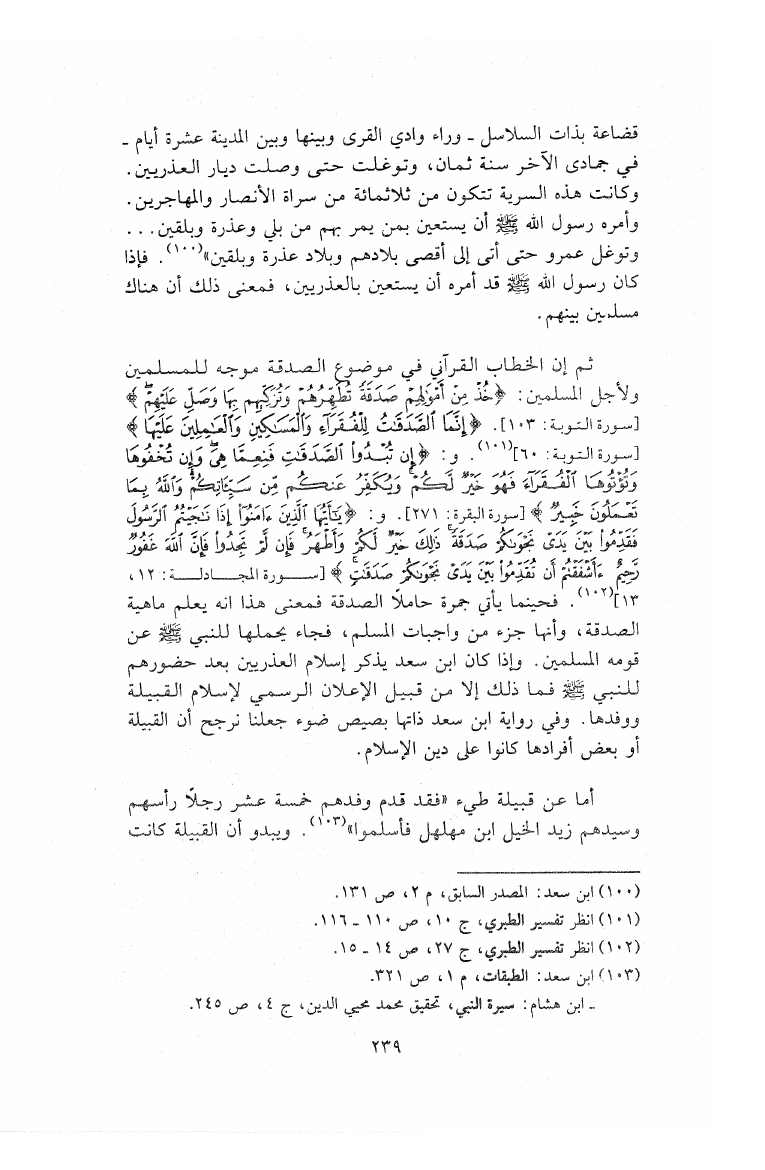 قضاعة بذات السلاسل ـ وراء وادي القرى وبينها وبين المدينة عشرة أيام ـ
في جمادى الآخر سنة ثمان، وتوغلت حتى وصلت ديار العذريين.
وكانت هذه السرية تتكون من ثلاثمائة من سراة الأنصار والمهاجرين.
وأمره رسول الله ﷺ أن يستعين بمن يمر بهم من بلي وعذرة وبلقين...
وتوغل عمرو حتى أتى إلى أقصى بلادهم وبلاد عذرة وبلقين»(١٠٠). فإذا
كان رسول الله ﷺ قد أمره أن يستعين بالعذريين، فمعنى ذلك أن هناك
مسلمين بينهم.
ثم إن الخطاب القرآني في موضوع الصدقة موجه للمسلمين
ولأجل المسلمين: ﴿خُذْ مِنْ أَمْوَٰلِهِمْ صَدَقَةً تُطَهِّرُهُمْ وَتُزَكِّيهِم بِهَا وَصَلِّ عَلَيْهِمْۖ﴾
[سورة التوبة: ١٠٣]. ﴿إِنَّمَا ٱلصَّدَقَٰتُ لِلْفُقَرَآءِ وَٱلْمَسَٰكِينِ وَٱلْعَٰمِلِينَ عَلَيْهَا﴾
[سورة التوبة: ٦٠](١٠١). و: ﴿إِن تُبْدُوا۟ ٱلصَّدَقَٰتِ فَنِعِمَّا هِىَۖ وَإِن تُخْفُوهَا
وَتُؤْتُوهَا ٱلْفُقَرَآءَ فَهُوَ خَيْرٌ لَّكُمْۚ وَيُكَفِّرُ عَنكُم مِّن سَيِّـَٔاتِكُمْۗ وَٱللَّهُ بِمَا
تَعْمَلُونَ خَبِيرٌ﴾ [سورة البقرة: ٢٧١]. و: ﴿يَٰٓأَيُّهَا ٱلَّذِينَ ءَامَنُوٓا۟ إِذَا نَٰجَيْتُمُ ٱلرَّسُولَ
فَقَدِّمُوا۟ بَيْنَ يَدَىْ نَجْوَىٰكُمْ صَدَقَةًۚ ذَٰلِكَ خَيْرٌ لَّكُمْ وَأَطْهَرُۚ فَإِن لَّمْ تَجِدُوا۟ فَإِنَّ ٱللَّهَ غَفُورٌ
رَّحِيمٌ ءَأَشْفَقْتُمْ أَن تُقَدِّمُوا۟ بَيْنَ يَدَىْ نَجْوَىٰكُمْ صَدَقَٰتٍۚ﴾ [سورة المجادلة: ١٢،
١٣](١٠٢). فحينما يأتي جمرة حاملًا الصدقة فمعنى هذا انه يعلم ماهية
الصدقة، وأنها جزء من واجبات المسلم، فجاء يحملها للنبي ﷺ عن
قومه المسلمين. وإذا كان ابن سعد يذكر إسلام العذريين بعد حضورهم
للنبي ﷺ فما ذلك إلا من قبيل الإعلان الرسمي لإسلام القبيلة
ووفدها. وفي رواية ابن سعد ذاتها بصيص ضوء جعلنا نرجح أن القبيلة
أو بعض أفرادها كانوا على دين الإسلام.
أما عن قبيلة طيء «فقد قدم وفدهم خمسة عشر رجلًا رأسهم
وسيدهم زيد الخيل ابن مهلهل فأسلموا»(١٠٣). ويبدو أن القبيلة كانت
(١٠٠) ابن سعد: المصدر السابق، م ٢، ص ١٣١.
(١٠١) انظر تفسير الطبري، ج ١٠، ص ١١٠ ـ ١١٦.
(١٠٢) انظر تفسير الطبري، ج ٢٧، ص ١٤ ـ ١٥.
(١٠٣) ابن سعد: الطبقات، م ١، ص ٣٢١.
ـ ابن هشام: سيرة النبي، تحقيق محمد محيي الدين، ج ٤، ص ٢٤٥.
٢٣٩